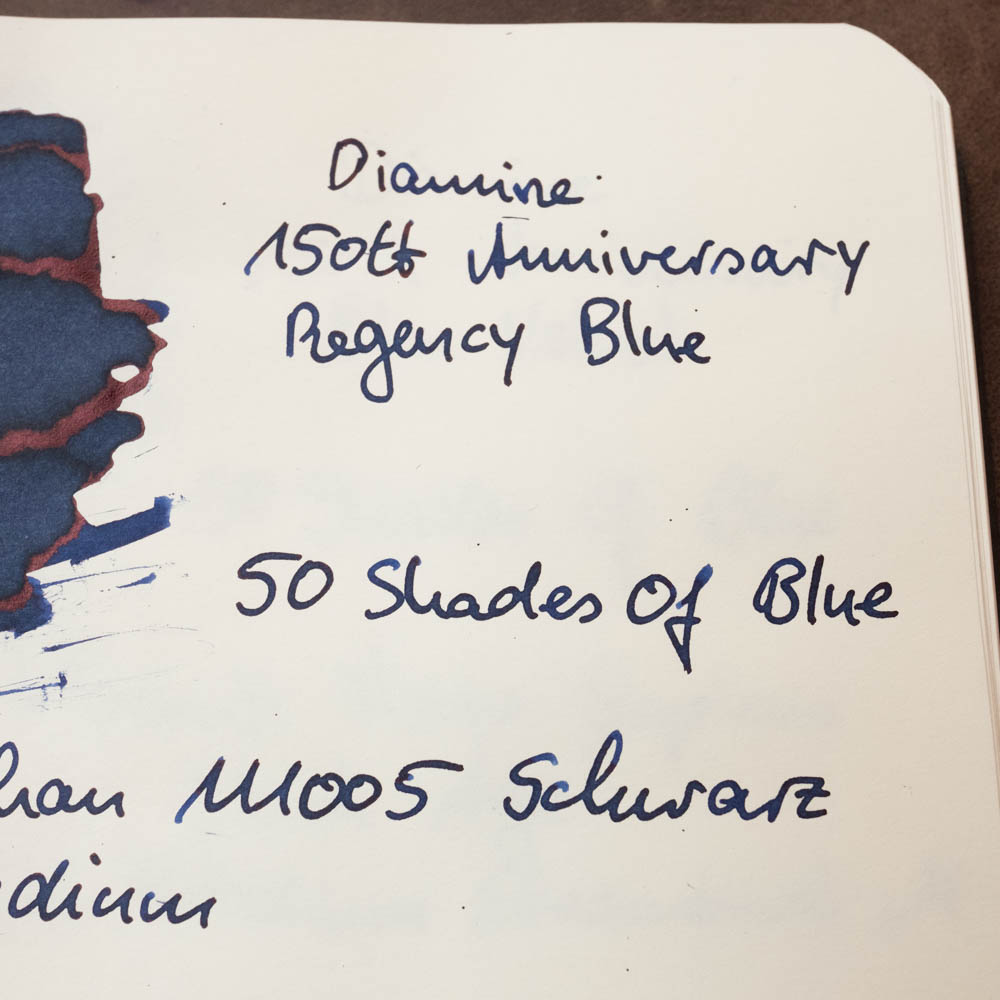 Diamine
150th Anniversary
Regency Blue
50 Shades Of Blue
kan M1005 Schwarz
edium